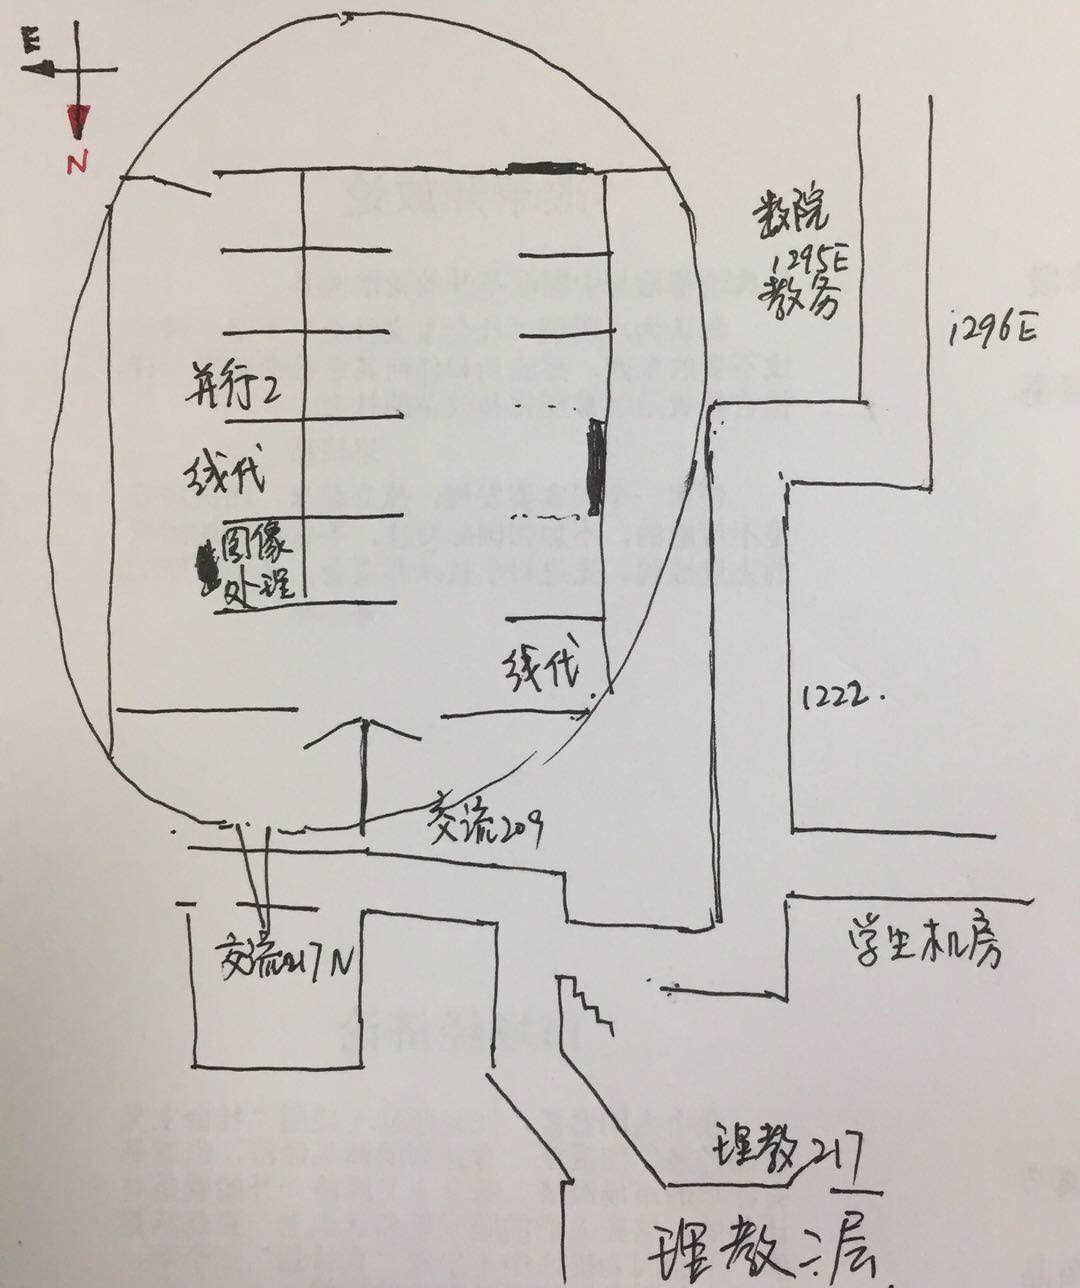 E
N
数院
1295E
教务
1296E
并行2
线代
图像
处理
线代
1222.
交流209
交流217N
学生机房
理教217
理教二层